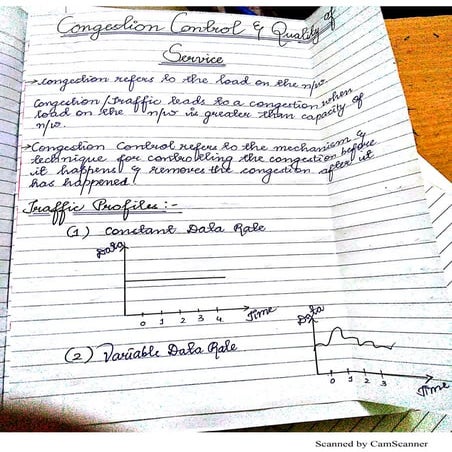 Congestion Control & Quality of
Service
→ congestion refers to the load on the n/w.
Congestion/Traffic leads to a congestion when
load on the n/w is greater than capacity of
n/w.
→ Congestion Control refers to the mechanism &
technique for controlling the congestion before
it happens & removes the congestion after it
has happened!
Traffic Profiles :-
(1) Constant Data Rate
Data
0 1 2 3 4 Time
Data
(2) Variable Data Rate
0 1 2 3
Time
Scanned by CamScanner